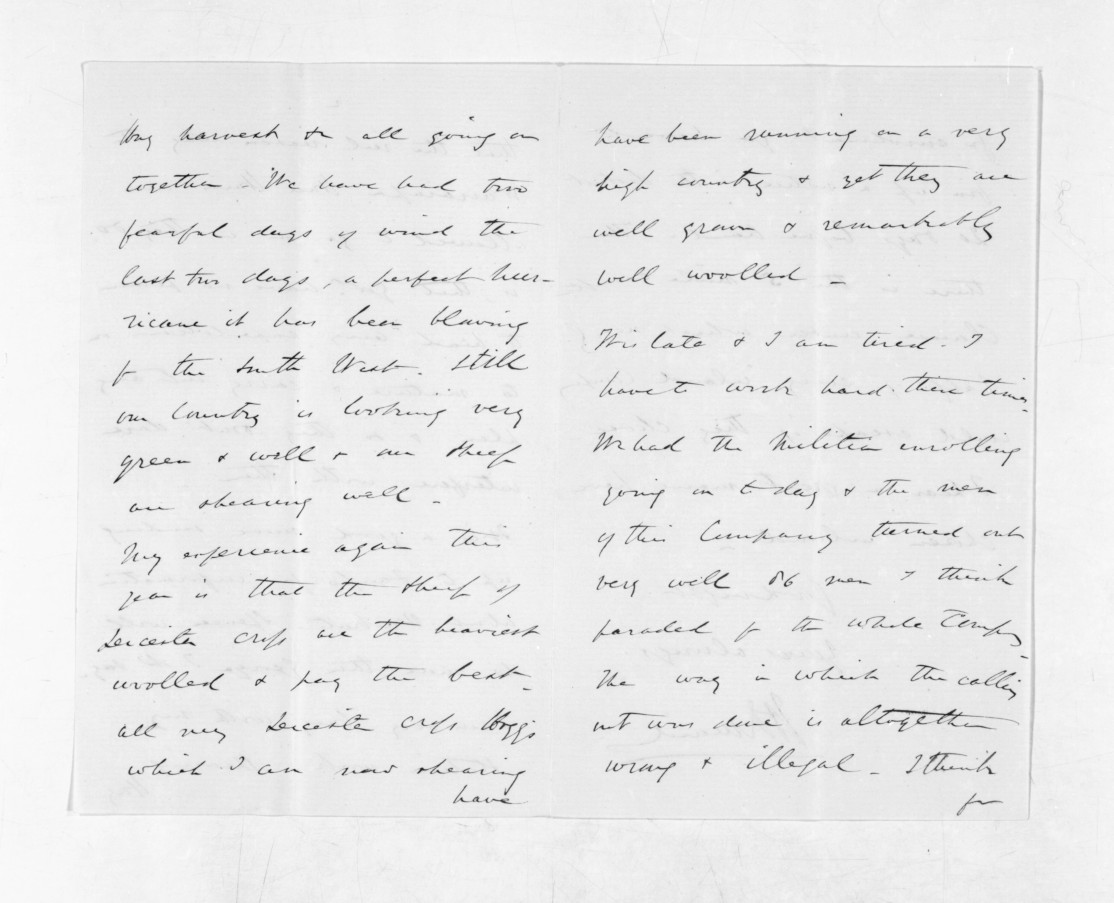 Hay harvest &c all going on
together - We have had two
fearful days of wind the
last two days, a perfect hur-
ricane it has been blowing
f the South West. Still
our Country is looking very
green & well & our sheep
are shearing well -
My experience again this
year is that the sheep of
Leicester cross are the heaviest
woolled & pay the best -
all my Leicester cross Hoggs
which I am now shearing
have
have been running on a very
high country & yet they are
well grown & remarkably
well woolled -
Tis late & I am tired. I
have to work hard these times.
We had the Militia enrolling
going on to day & the men
of this Company turned out
very well 86 men I think
paraded f the whole Compy -
The way in which the calling
out was done is altogether
wrong & illegal - I think
for